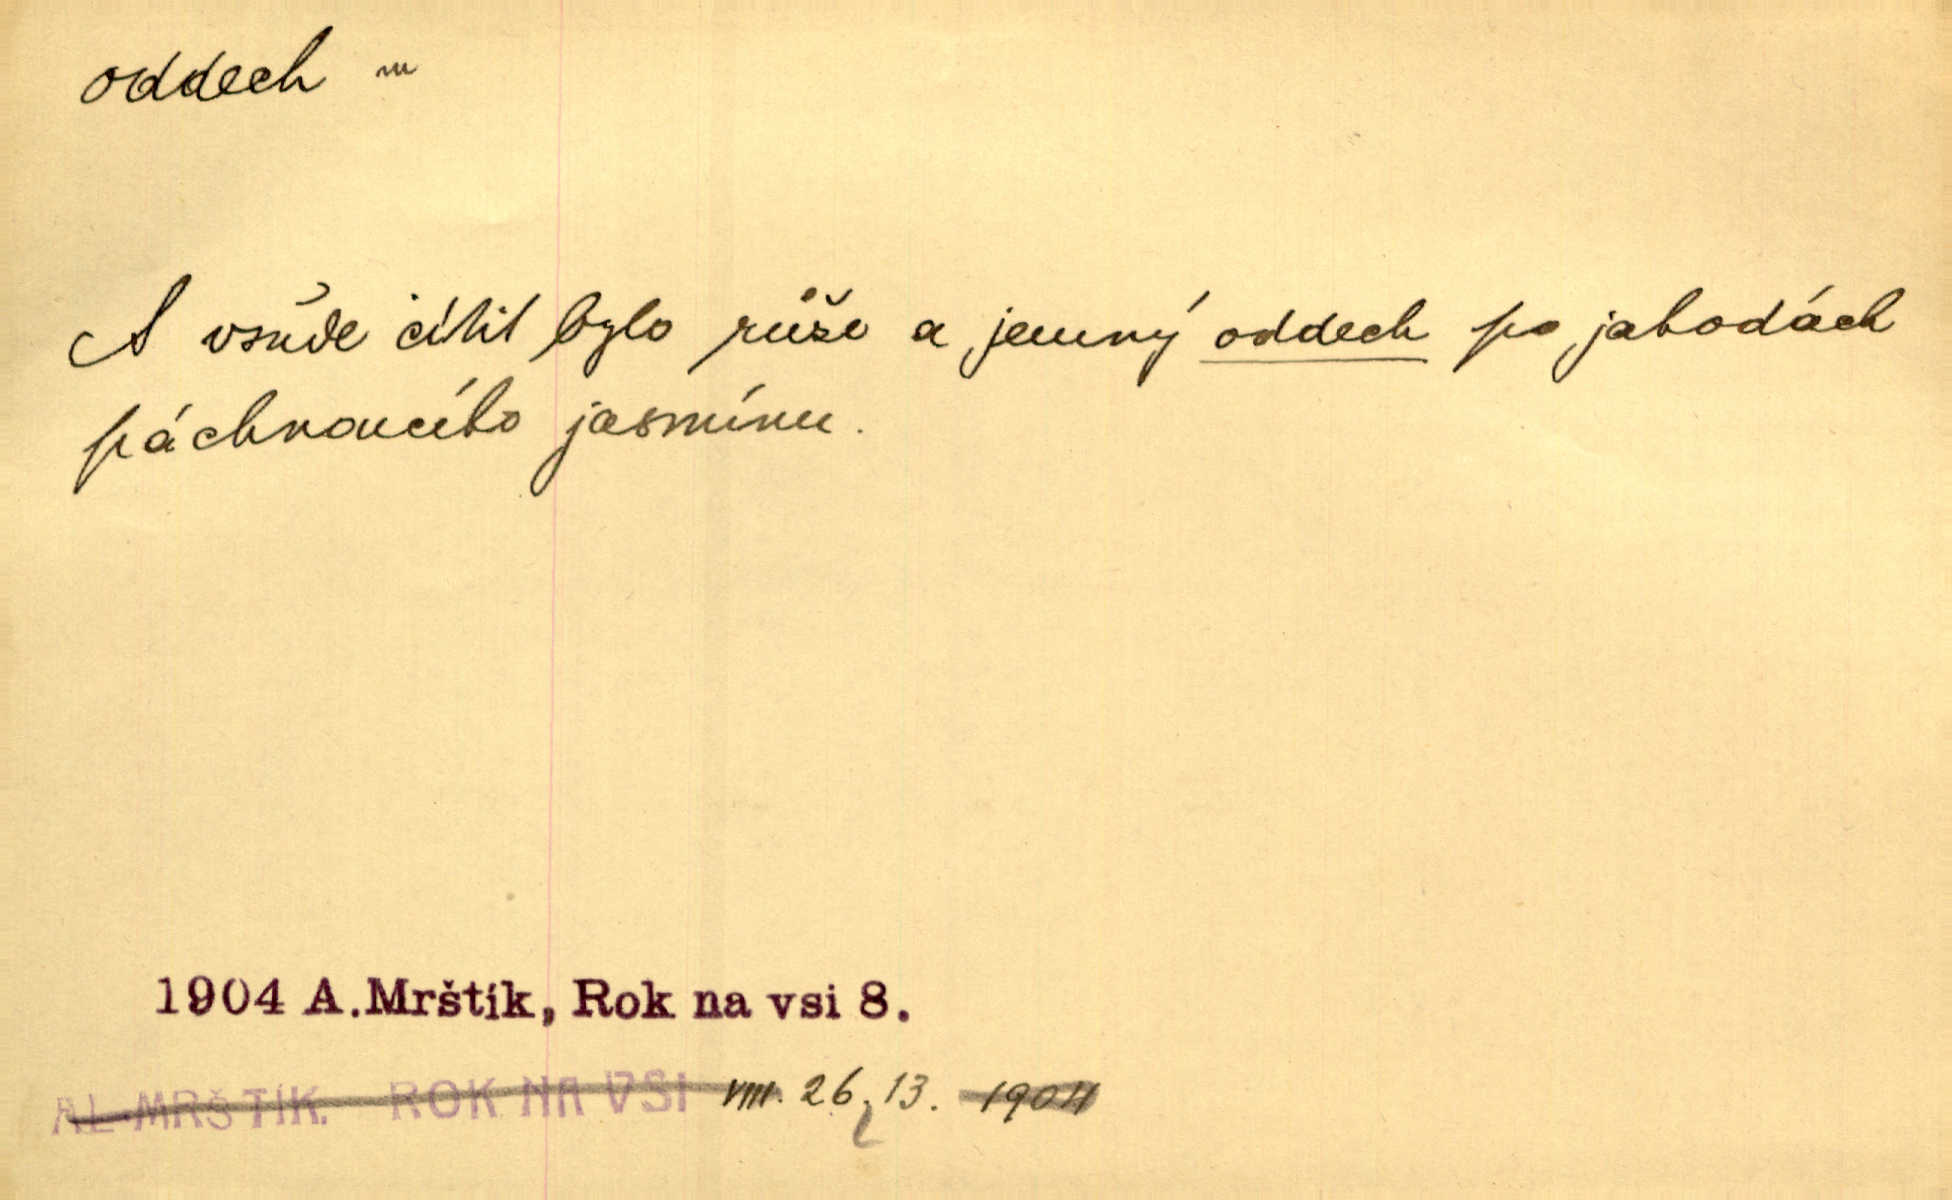 oddech m
A vsůde cítit bylo růže a jemný oddech po jahodách
páchnoucího jasmínu.
1904 A. Mrštík, Rok na vsi 8.
AL. MRŠTÍK. ROK NA VSI VIII. 26, 13. 1904